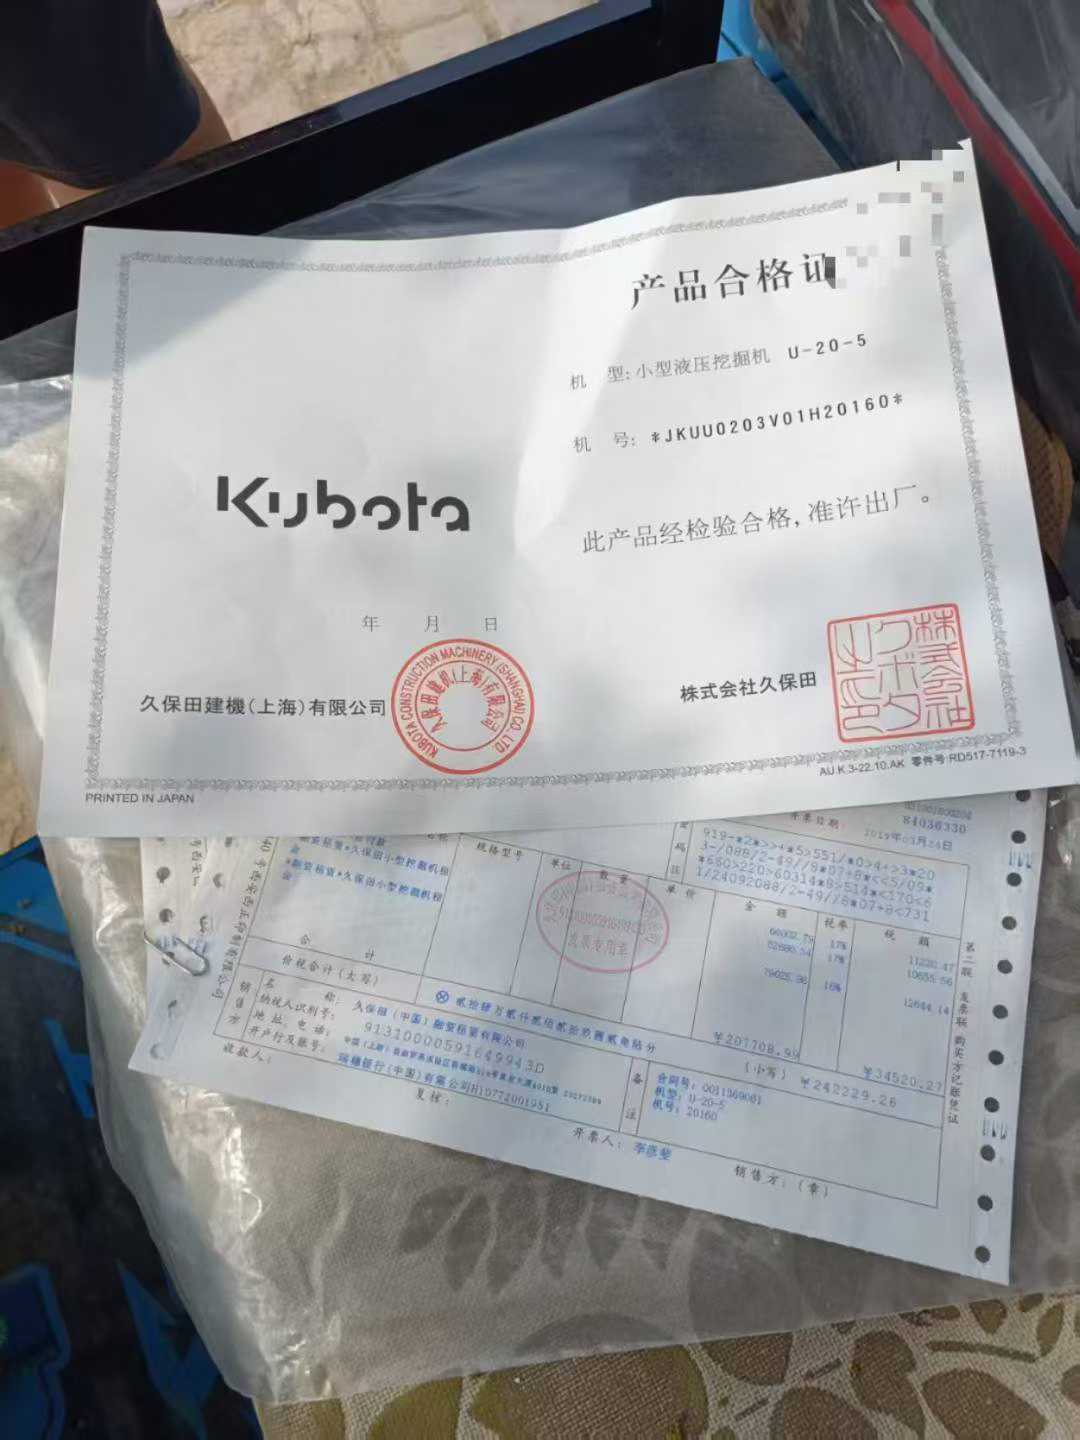 产品合格证
机 型: 小型液压挖掘机 U-20-5
机 号: *JKUU0203V01H20160*
此产品经检验合格, 准许出厂。
Kubota
年 月 日
久保田建機(上海)有限公司
KUBOTA CONSTRUCTION MACHINERY (SHANGHAI) CO., LTD.
久保田建机(上海)有限公司
株式会社久保田
株式会社クボタ之印
AU.K.3-22.10.AK 零件号 RD517-7119-3
PRINTED IN JAPAN
84036330
开票日期:
规格型号
单位
数量
单价
金额
税率
税额
919-*2*>>+*5>551/*0>4+>3*20
3-/088/2-49//8*07+8<<5/09*
*660>220>60314*8>514*<170<6
1/24092088/2-49//8*07+8<731
*融资租赁*久保田小型挖掘机租
17%
11220.47
17%
10655.56
79025.86
16%
12644.14
发票专用章
合 计
¥207708.99
¥34520.27
价税合计(大写)
贰拾肆万贰仟贰佰贰拾玖圆贰角陆分
(小写)
¥242229.26
销售方
名 称: 久保田(中国)融资租赁有限公司
纳税人识别号: 91310000591649943D
地 址、电 话:
开户行及账号: 瑞穗银行(中国)有限公司H10772001951
备注
合同号: 0011369061
机型: U-20-5
机号: 20160
收款人:
复核:
开票人:
销售方: (章)
第二联 发票联 购买方记账凭证